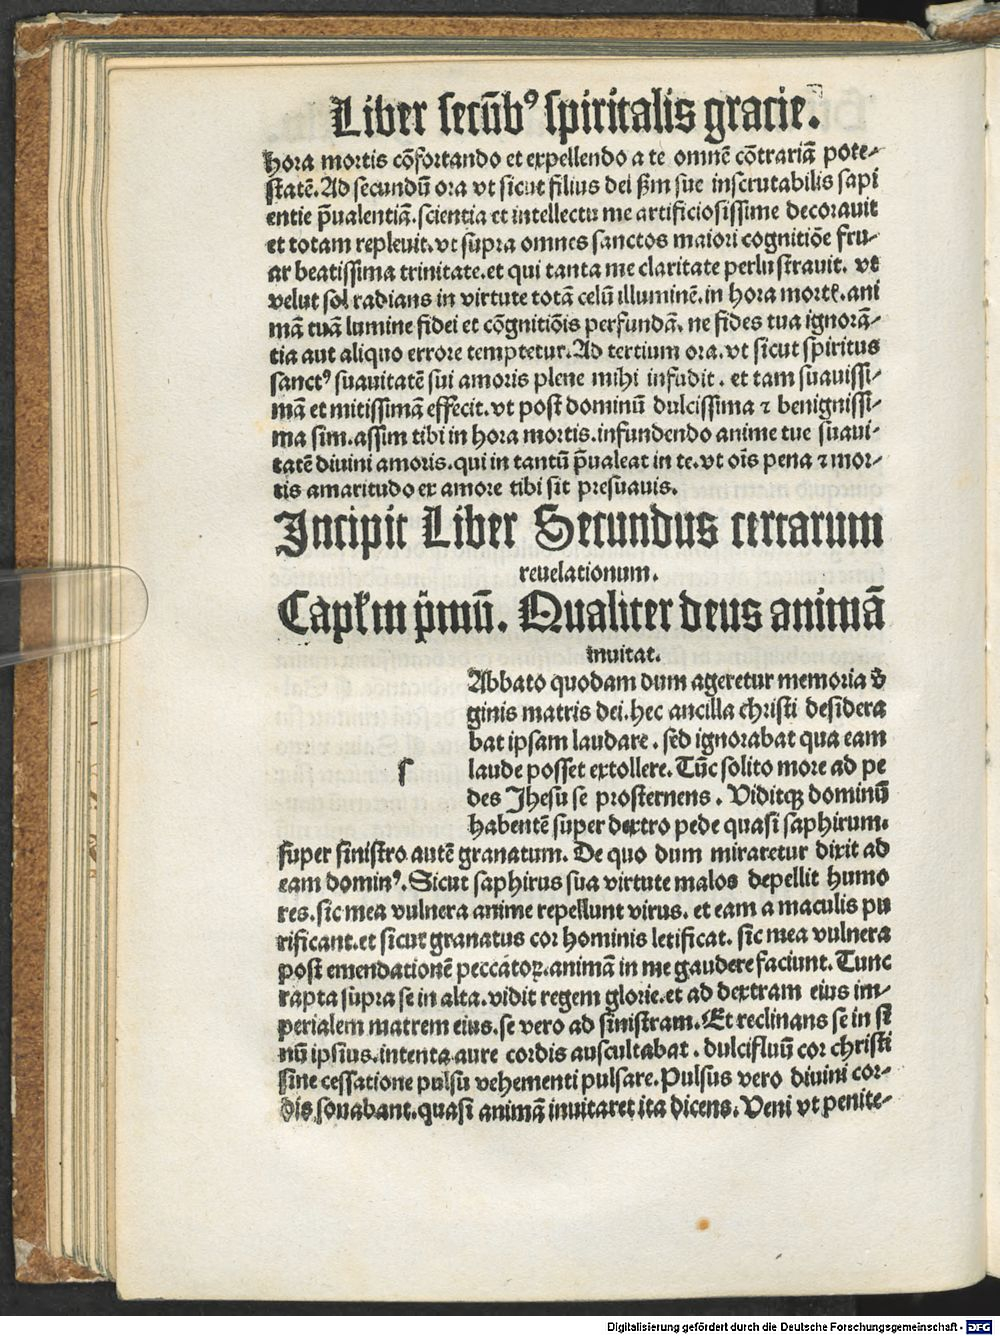 Liber secūdꝰ spiritalis gracie.
hora mortis cōfortando et expellendo a te omnē cōtrariā pote-
statē. Ad secundū ora vt sicut filius dei ẜm sue inscrutabilis sapi
entie p̄ualentiā. scientia et intellectu me artificiosissime decorauit
et totam repleuit. vt supra omnes sanctos maiori cognitiōe fru-
ar beatissima trinitate. et qui tanta me claritate perlustrauit. vt
velut sol radians in virtute totā celū illuminē. in hora mortꝭ. ani
mā tuā lumine fidei et cōgnitiōis perfundā. ne fides tua ignorā-
tia aut aliquo errore temptetur. Ad tertium ora. vt sicut spiritus
sanctꝰ suauitatē sui amoris plene mihi infudit. et tam suauissi-
mā et mitissimā effecit. vt post dominū dulcissima ⁊ benignissi-
ma sim. assim tibi in hora mortis. infundendo anime tue suaui-
tatē diuini amoris. qui in tantū p̄ualeat in te. vt oīs pena ⁊ mor-
tis amaritudo ex amore tibi sit presuauis.
Incipit Liber Secundus certarum
reuelationum.
Capl'm p̄mū. Qualiter deus animā
inuitat.
Abbato quodam dum ageretur memoria v̄
ginis matris dei. hec ancilla christi desidera
bat ipsam laudare. sed ignorabat qua eam
ſ laude posset extollere. Tūc solito more ad pe
des Jhesu se prosternens. Viditqꝫ dominū
habentē super dextro pede quasi saphirum.
super sinistro autē granatum. De quo dum miraretur dixit ad
eam dominꝰ. Sicut saphirus sua virtute malos depellit humo
res. sic mea vulnera anime repellunt virus. et eam a maculis pu
rificant. et sicut granatus cor hominis letificat. sic mea vulnera
post emendationē peccatoꝝ. animā in me gaudere faciunt. Tunc
rapta supra se in alta. vidit regem glorie. et ad dextram eius im-
perialem matrem eius. se vero ad sinistram. Et reclinans se in si
nū ipsius. intenta aure cordis auscultabat. dulcifluū cor christi
sine cessatione pulsu vehementi pulsare. Pulsus vero diuini cor-
dis sonabant. quasi animā inuitaret ita dicens. Veni vt penite-
Digitalisierung gefördert durch die Deutsche Forschungsgemeinschaft - DFG